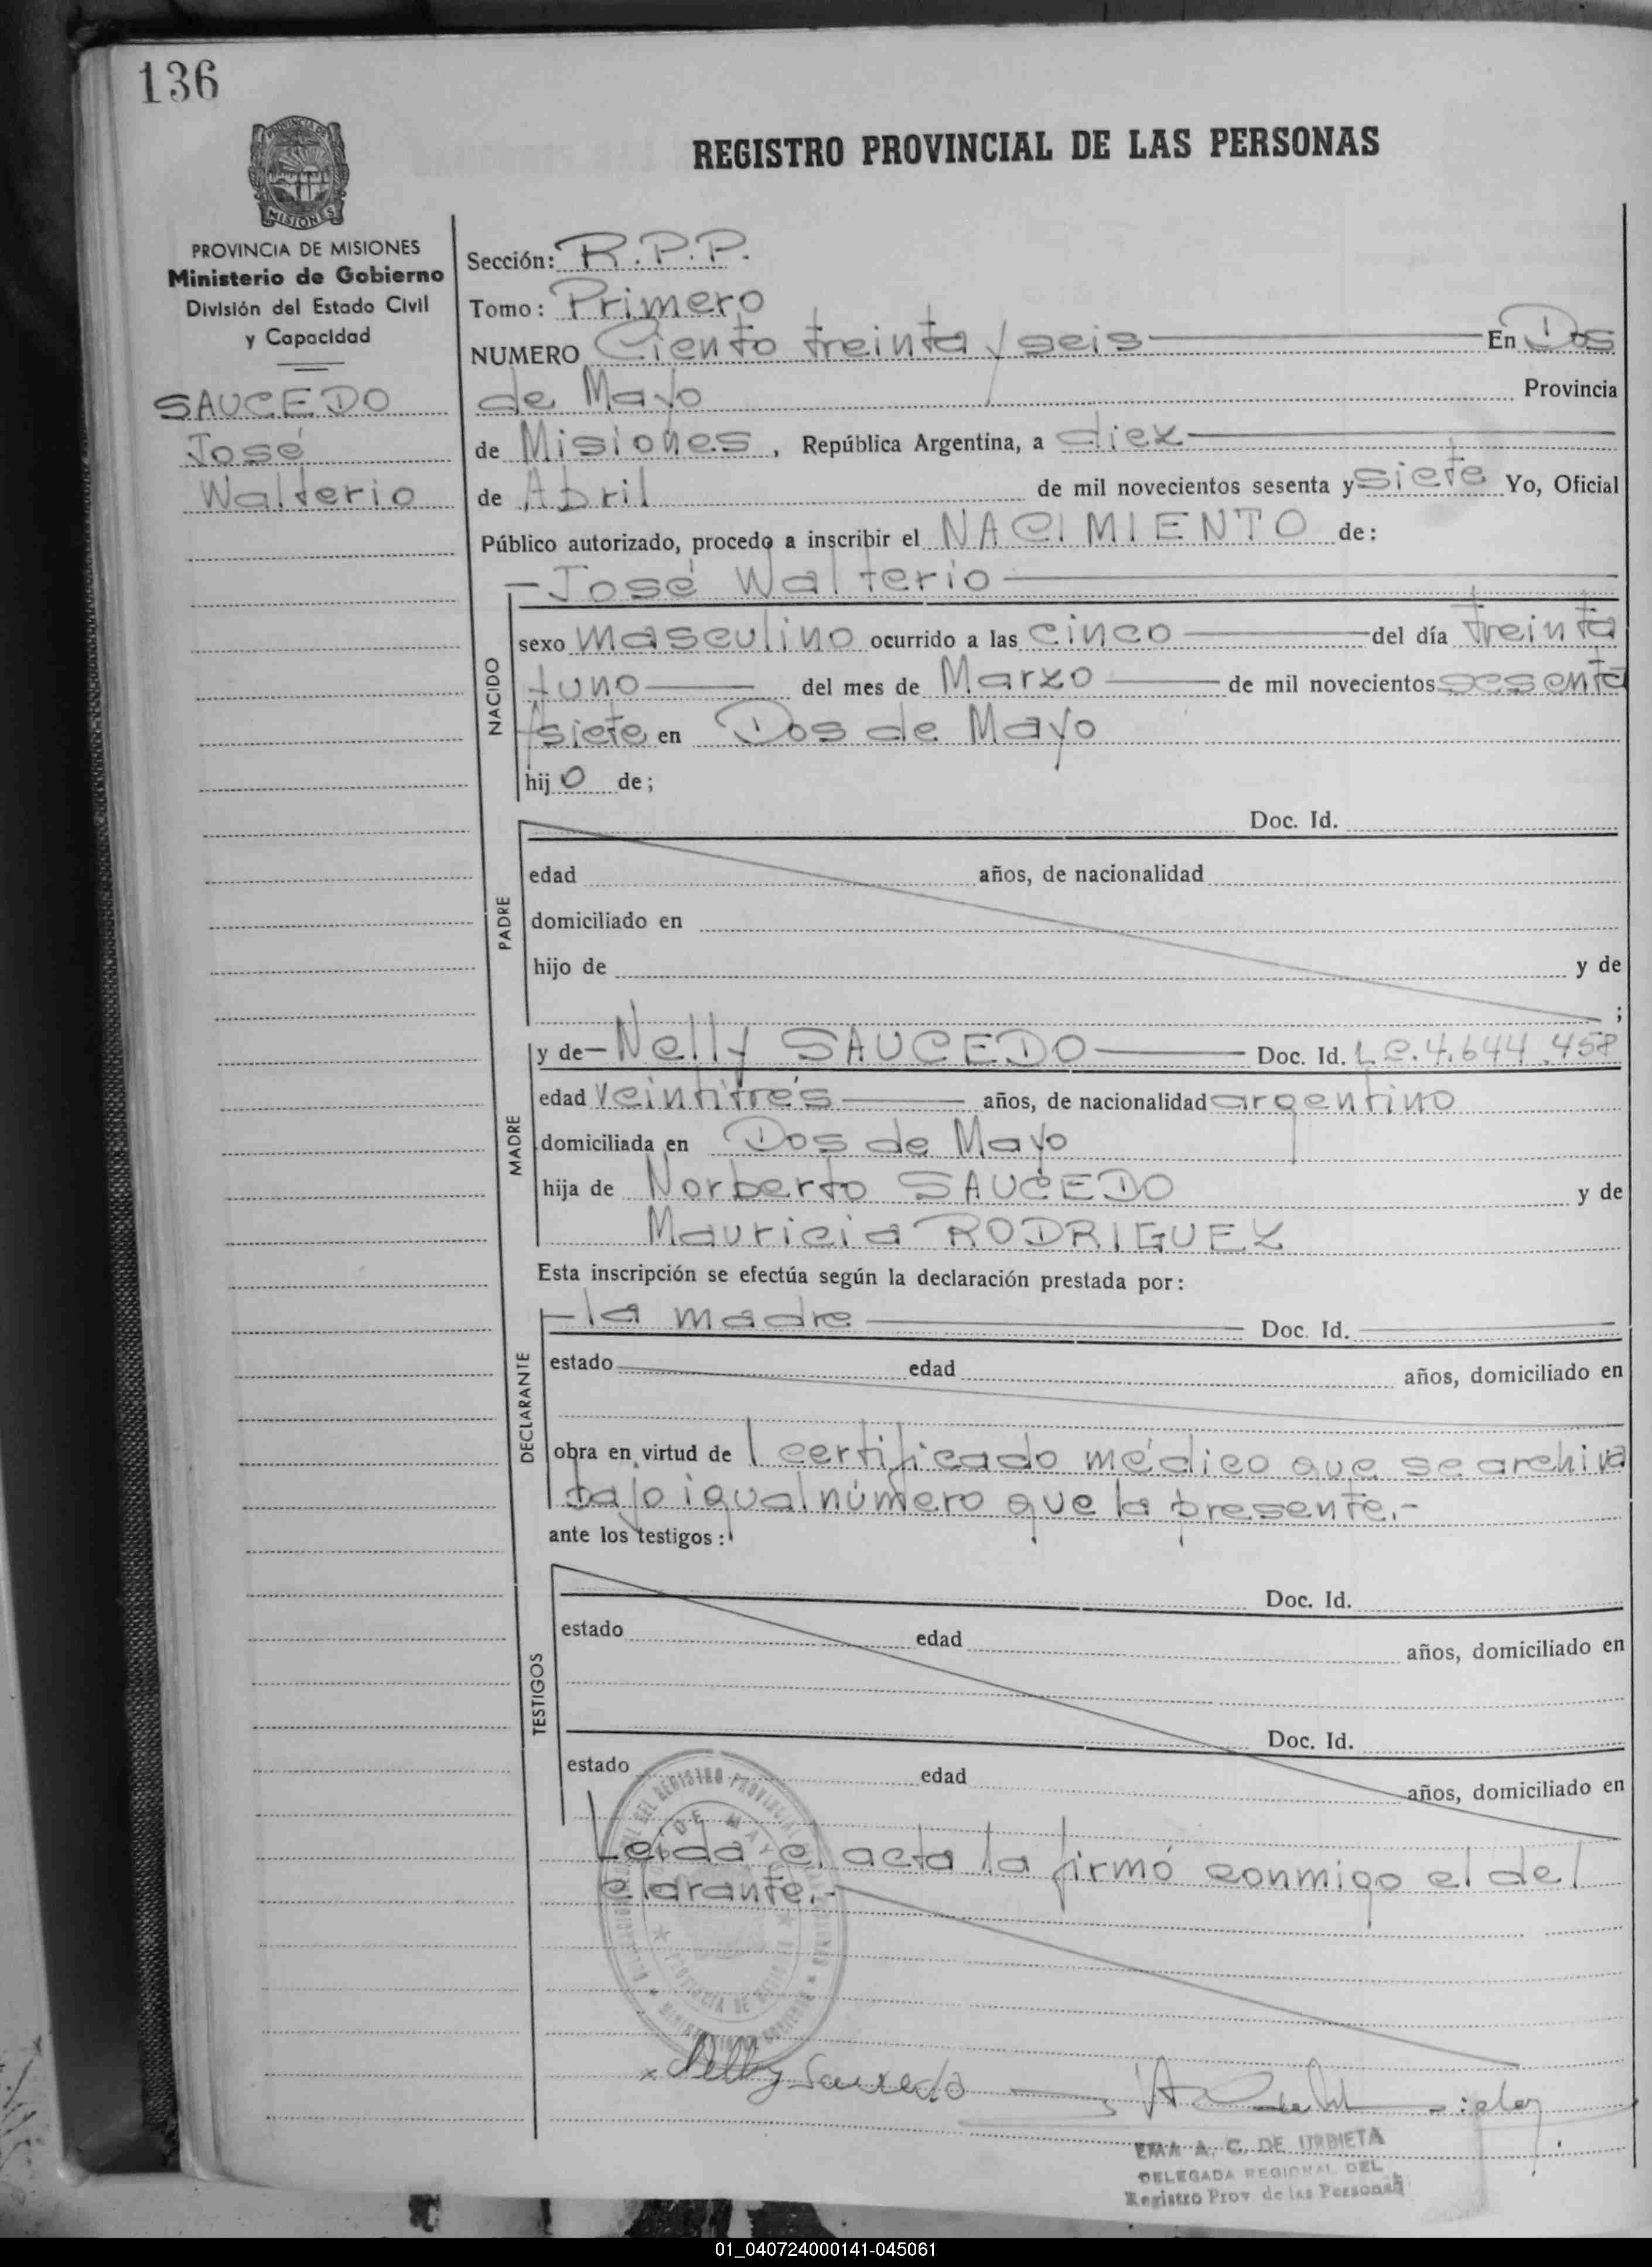 136
REGISTRO PROVINCIAL DE LAS PERSONAS
PROVINCIA DE MISIONES
Ministerio de Gobierno
División del Estado Civil
y Capacidad
SAUCEDO
José
Walterio
Sección: R.P.P.
Tomo: Primero
NUMERO Ciento treinta y seis En Dos
de Mayo Provincia
de Misiones, República Argentina, a diez
de Abril de mil novecientos sesenta y siete Yo, Oficial
Público autorizado, procedo a inscribir el NACIMIENTO de:
José Walterio
NACIDO
sexo masculino ocurrido a las cinco del día treinta
y uno del mes de Marzo de mil novecientos sesenta
y siete en Dos de Mayo
hijo de;
PADRE
Doc. Id.
edad años, de nacionalidad
domiciliado en
hijo de y de
;
MADRE
y de Nelly SAUCEDO Doc. Id. L.C. 4.644.458
edad veintitrés años, de nacionalidad argentino
domiciliada en Dos de Mayo
hija de Norberto SAUCEDO y de
Mauricia RODRIGUEZ
Esta inscripción se efectúa según la declaración prestada por:
DECLARANTE
la madre Doc. Id.
estado edad años, domiciliado en
obra en virtud de l certificado médico que se archiva
bajo igual número que la presente.-
ante los testigos:
TESTIGOS
Doc. Id.
estado edad años, domiciliado en
Doc. Id.
estado edad años, domiciliado en
Leída el acta la firmó conmigo el de
clarante.-
Nelly Saucedo
EMA A. C. DE URBIETA
DELEGADA REGIONAL DEL
Registro Prov. de las Personas
01_040724000141-045061